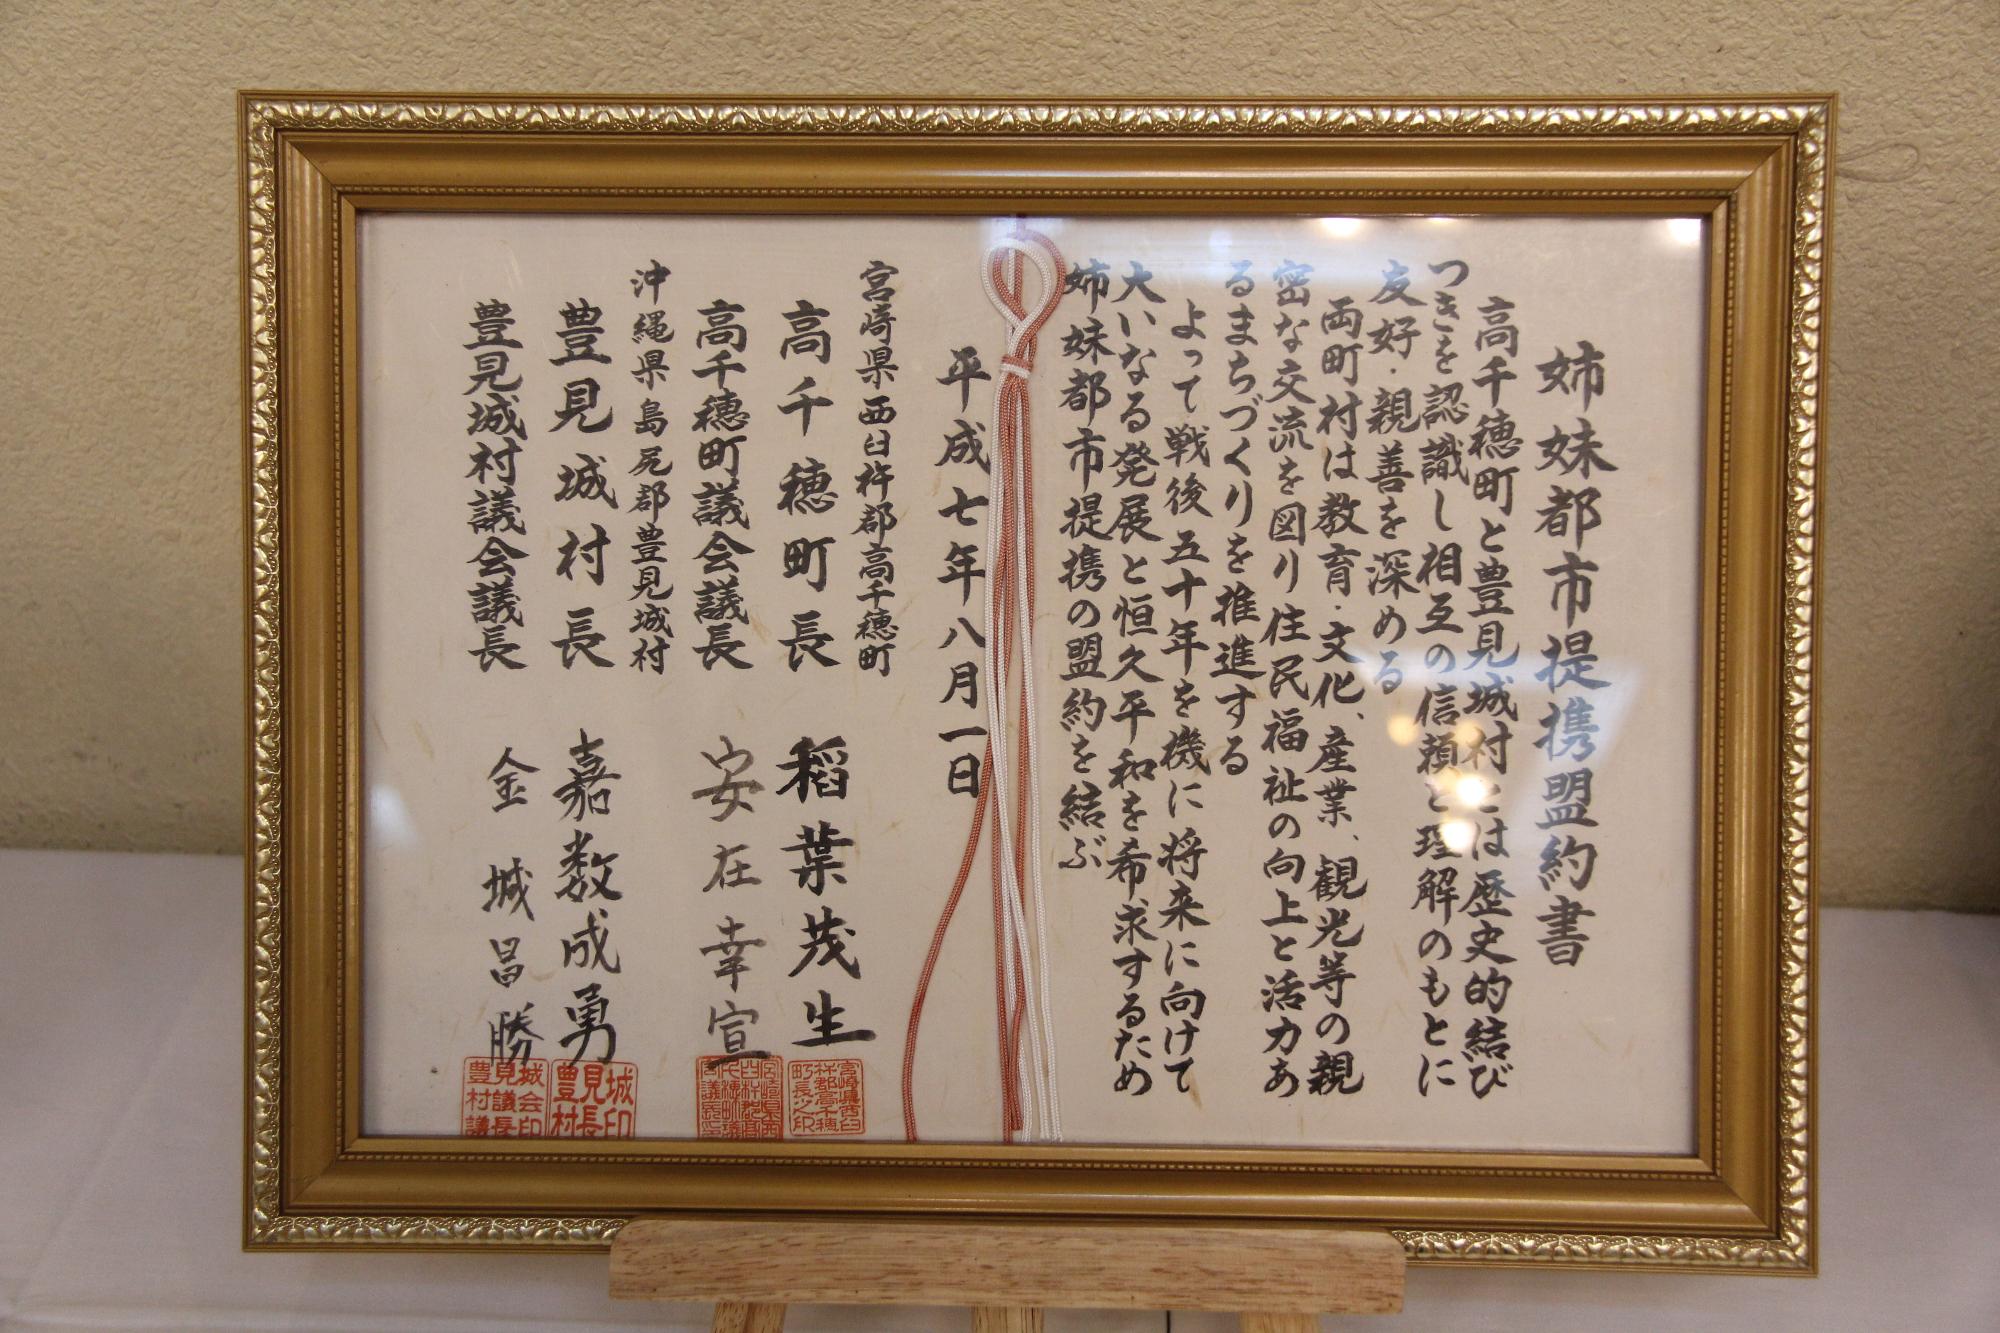 姉妹都市提携盟約書
高千穂町と豊見城村とは歴史的結び
つきを認識し相互の信頼と理解のもとに
友好・親善を深める
両町村は教育・文化、産業、観光等の親
密な交流を図り住民福祉の向上と活力あ
るまちづくりを推進する
よって戦後五十年を機に将来に向けて
大いなる発展と恒久平和を希求するため
姉妹都市提携の盟約を結ぶ
平成七年八月一日
宮崎県西臼杵郡高千穂町
高千穂町長 稲葉茂生
高千穂町議会議長 安在幸宣
沖縄県島尻郡豊見城村
豊見城村長 嘉数成勇
豊見城村議会議長 金城昌勝
宮崎県西臼
杵郡高千穂
町長之印
城印
見長
豊村
城会印
見議長
豊村議